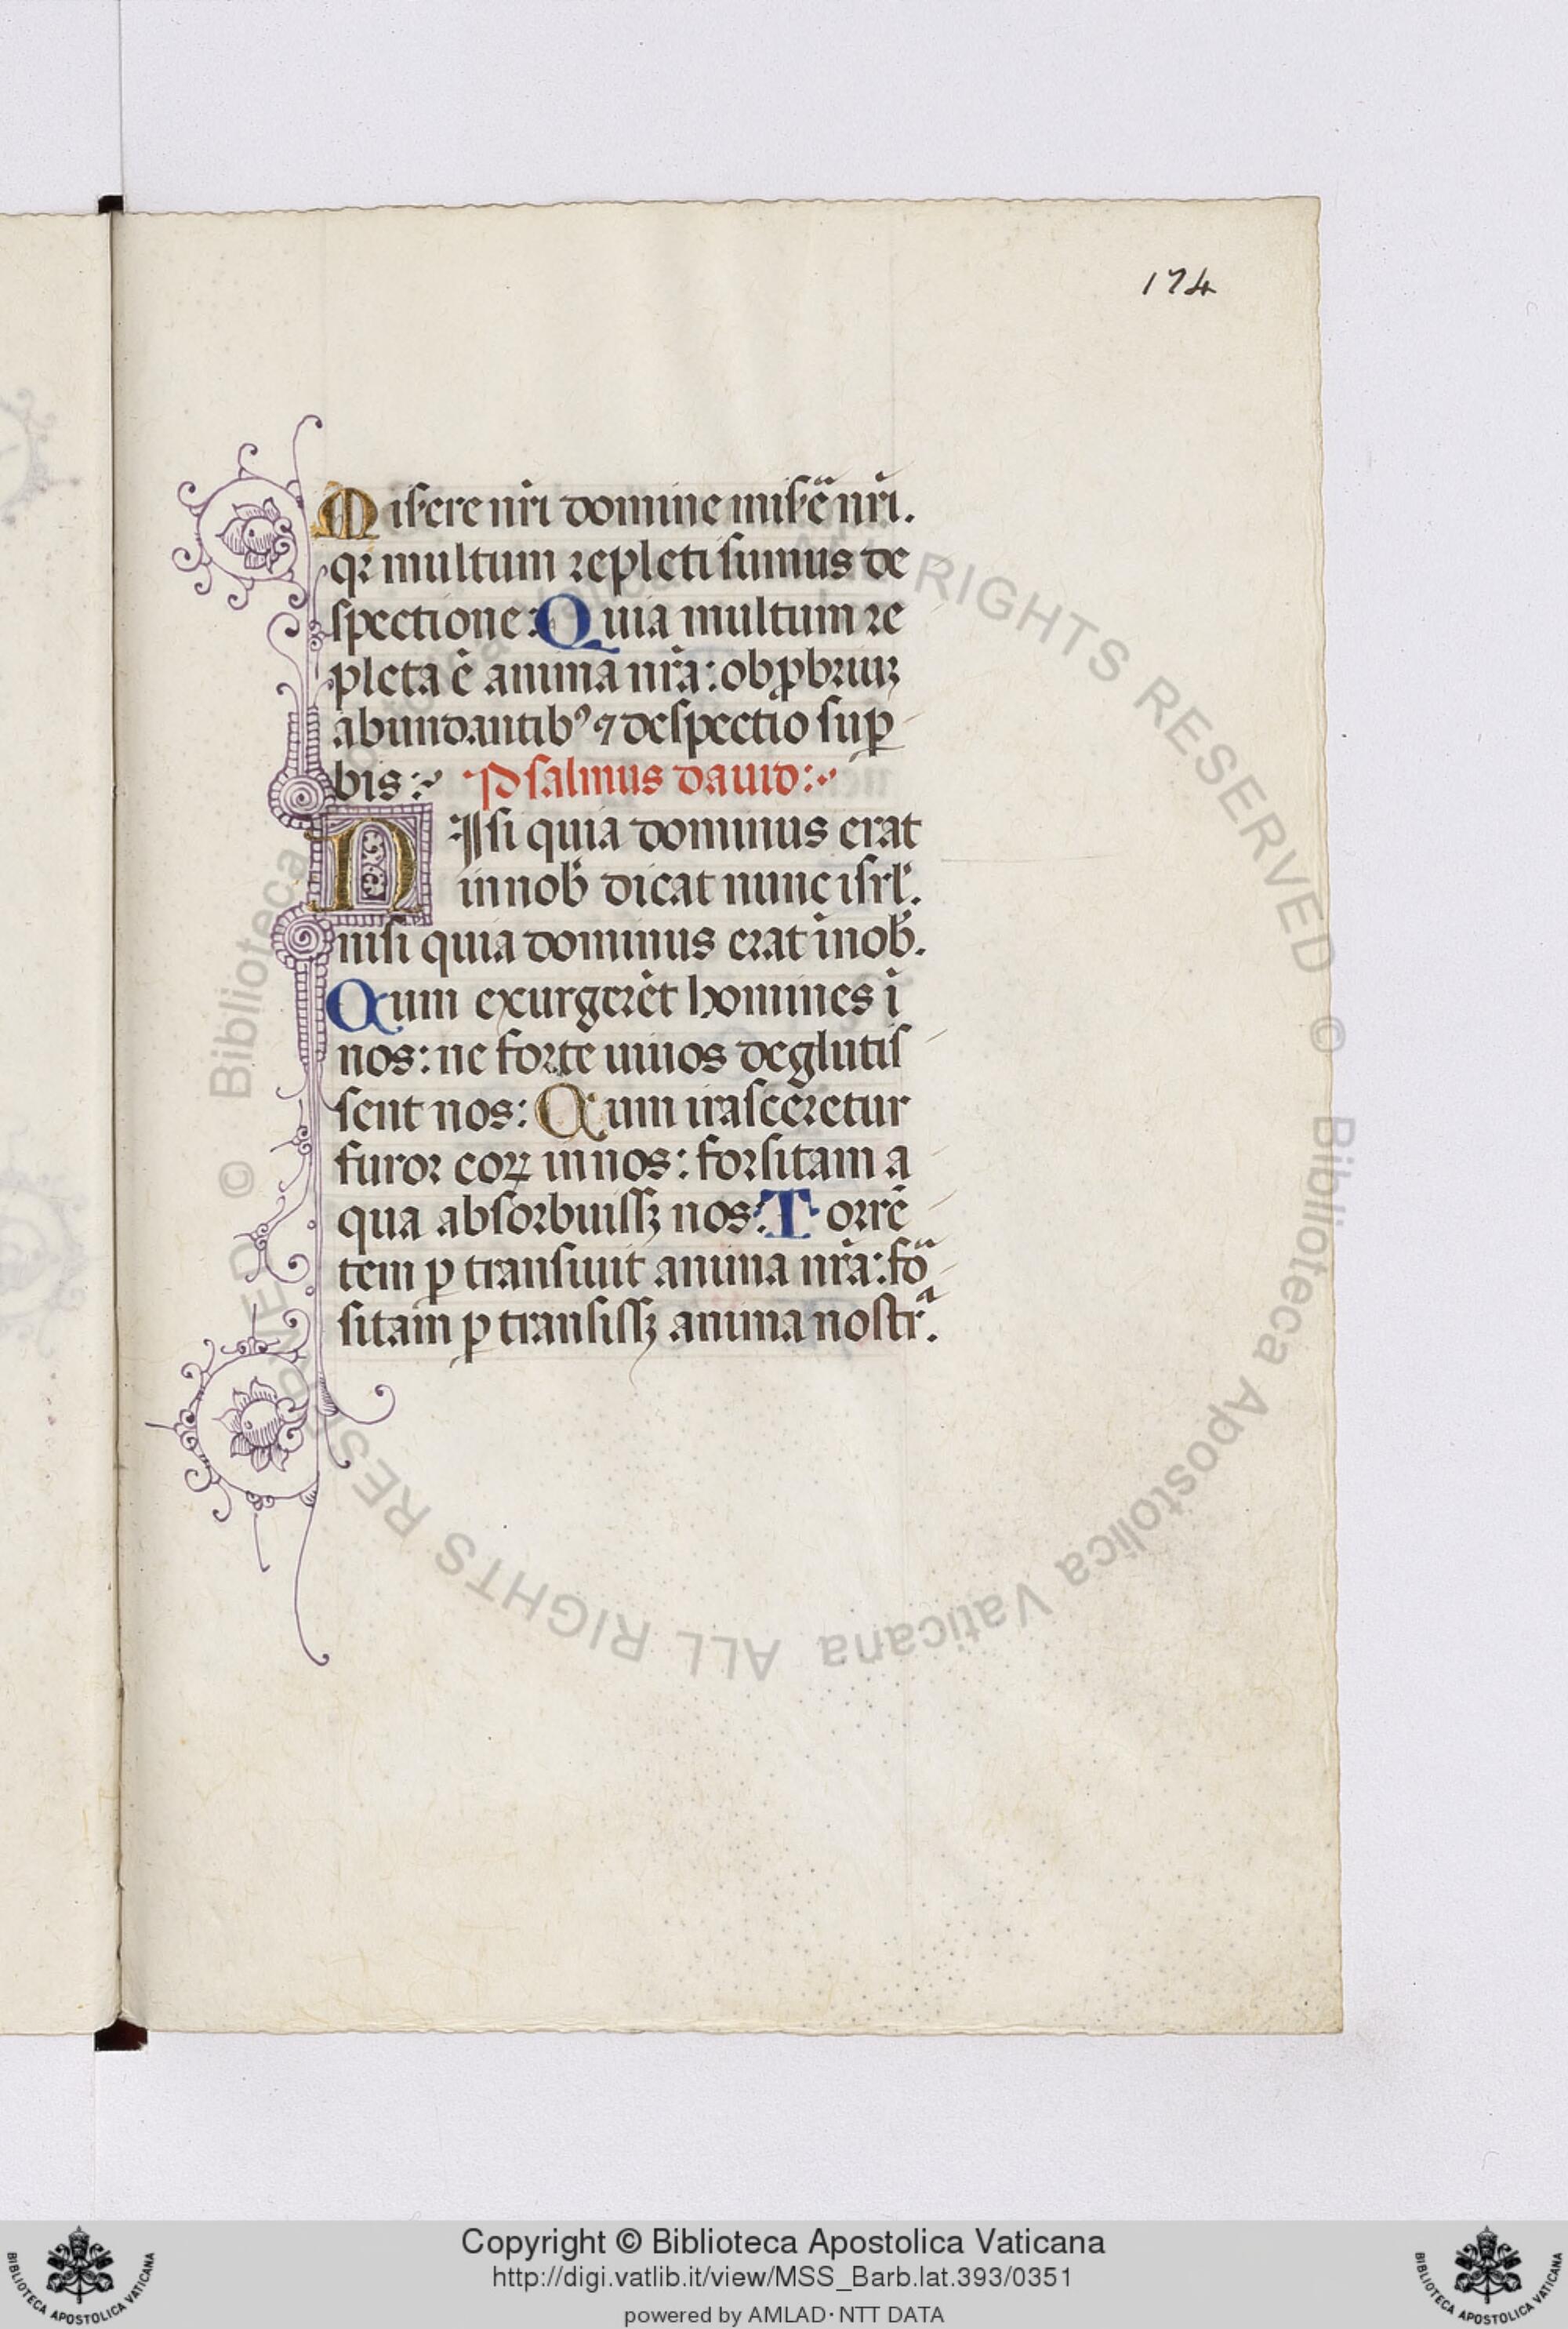 174
Miẜere nr̄i domine miẜeᷓ nr̄i.
qꝛ multum ꝛepleti ſumus de
ſpectione: Quia multum ꝛe
pleta ē anima nr̄a: obꝓbꝛiuꝫ
abundantibꝰ ⁊ deſpectio ſuꝑ
bis: Pſalmus dauid:
NIſi quia dominus erat
in nob̄ dicat nunc iſrl̄.
niſi quia dominus eꝛat ī nob̄.
Qum exurgeꝛēt homines ī
nos: ne foꝛte uiuos deglutiſ
ſent nos: Qum iraſceꝛetur
furoꝛ coꝝ in nos: foꝛſitam a
qua abſoꝛbuiſſꝫ nos: Torrē
tem ꝑ tranſiuit anima nr̄a: foᷓ
ſitam ꝑ tranſiſſꝫ anima noſtrᵃ.
ALL RIGHTS RESERVED © Biblioteca Apostolica Vaticana
ALL RIGHTS RESERVED © Biblioteca
Copyright © Biblioteca Apostolica Vaticana
http://digi.vatlib.it/view/MSS_Barb.lat.393/0351
powered by AMLAD·NTT DATA
BIBLIOTECA APOSTOLICA VATICANA
BIBLIOTECA APOSTOLICA VATICANA